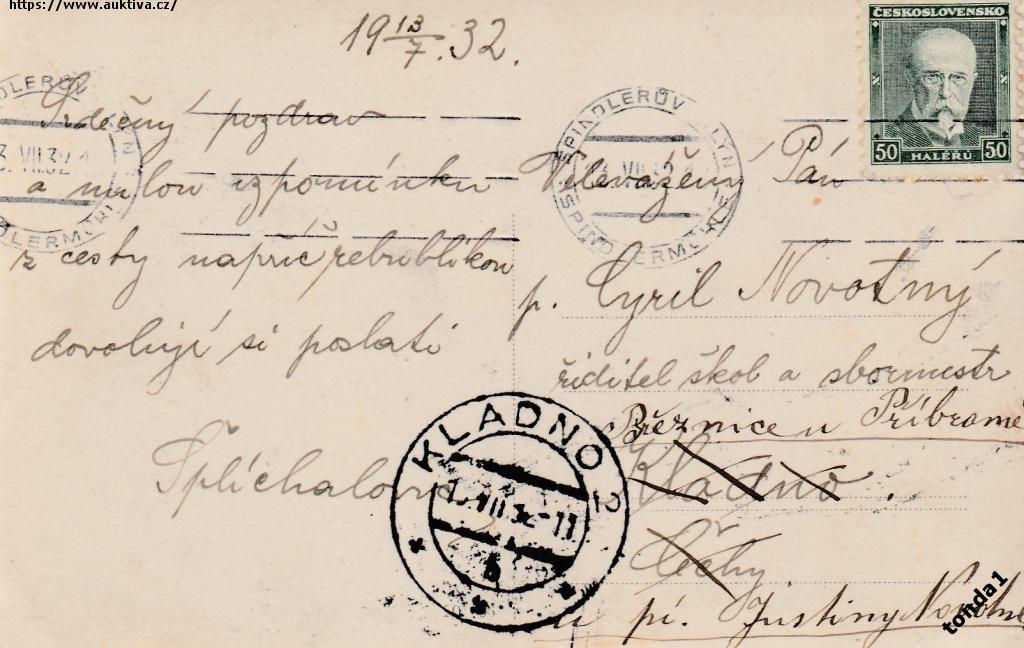 https://www.auktiva.cz/
19 13/7. 32.
ČESKOSLOVENSKO
50 HALÉŘŮ 50
Srdečný pozdrav
a milou vzpomínku
z cesty napříč republikou
dovoluji si poslati
Šplíchalová
ŠPINDLERŮV MLÝN
SPINDLERMÜHLE
VII 32
Velevážený Pán
p. Cyril Novotný
řiditel škol a sbormistr
Březnice u Příbramě
Kladno.
Čechy
u pí. Justiny Novotné
KLADNO 2
VII 32-11
b
tonda1